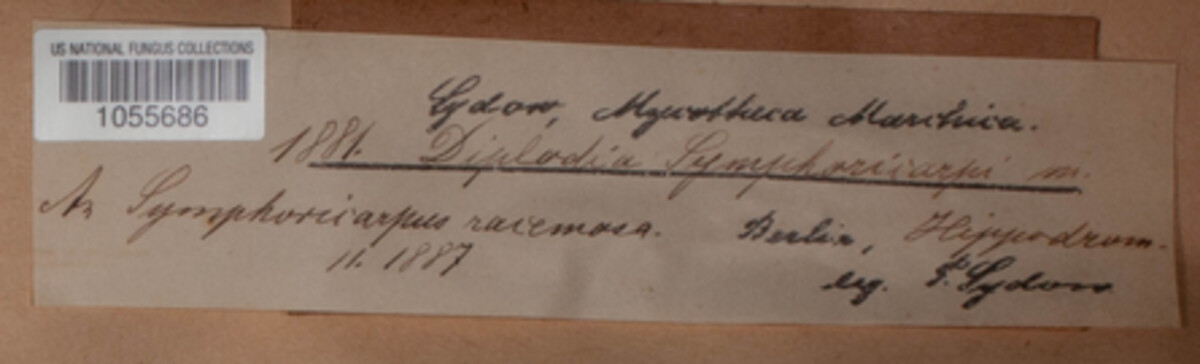 US NATIONAL FUNGUS COLLECTIONS
1055686
Sydow, Mycotheca Marchica.
1881. Diplodia Symphoricarpi m.
An Symphoricarpus racemosa. Berlin, Hippodrom.
11. 1887 leg. P. Sydow